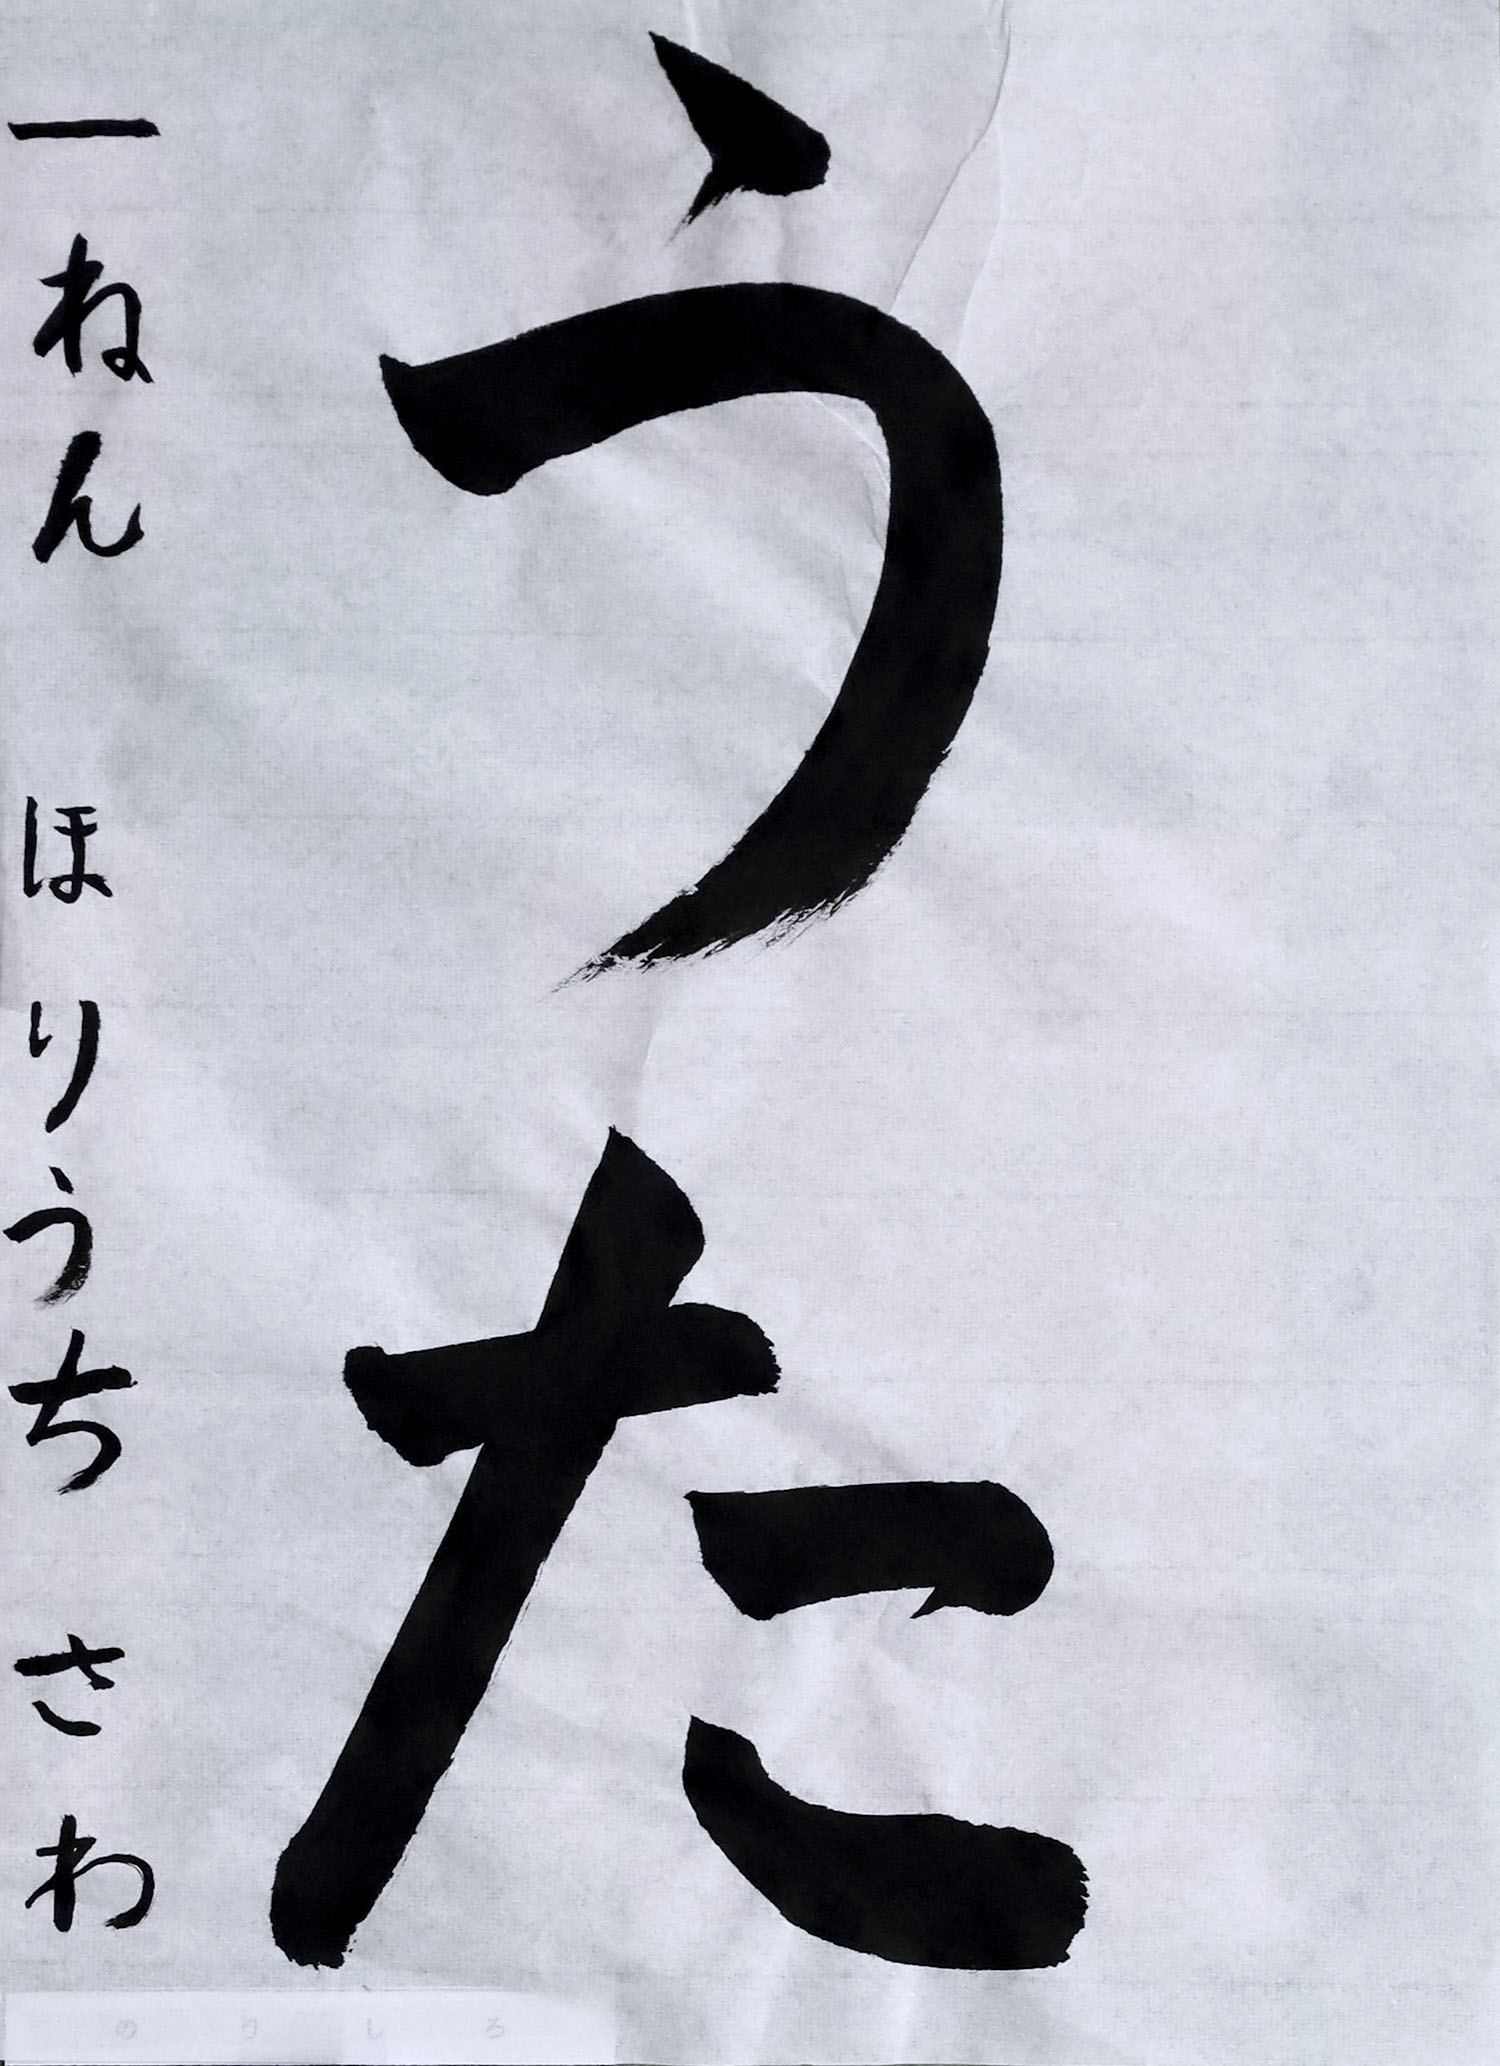 うた
一ねん ほりうち さわ
のりしろ